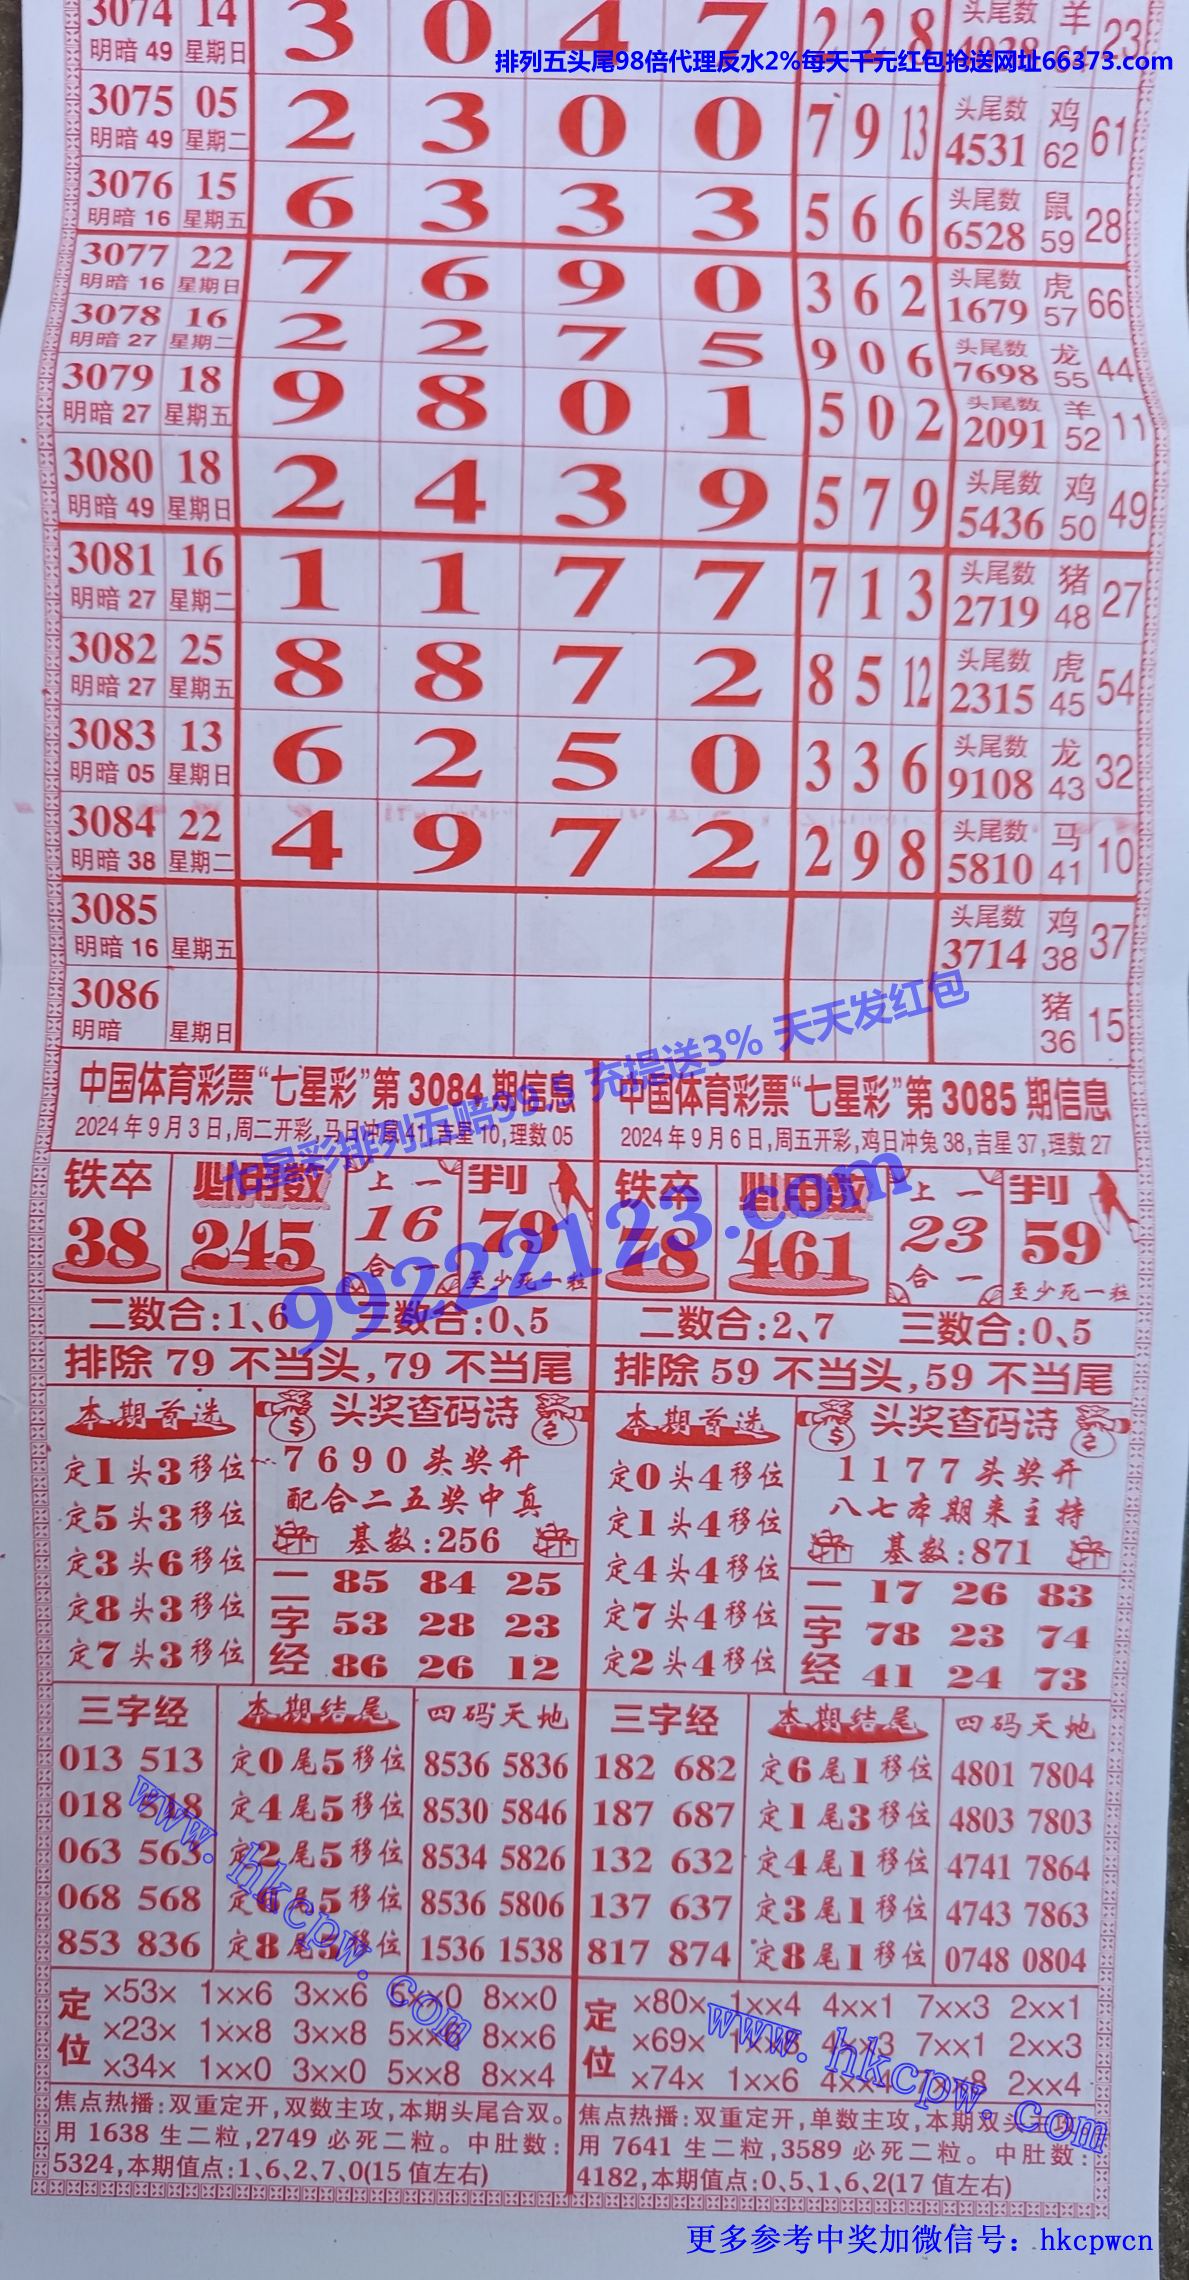 3074 14 3 0 4 7 2 2 8 头尾数 羊 23
明暗 49 星期日 4038
排列五头尾98倍代理反水2%每天千元红包抢送网址66373.com
3075 05 2 3 0 0 7 9 13 头尾数 鸡 61
明暗 49 星期二 4531 62
3076 15 6 3 3 3 5 6 6 头尾数 鼠 28
明暗 16 星期五 6528 59
3077 22 7 6 9 0 3 6 2 头尾数 虎 66
明暗 16 星期日 1679 57
3078 16 2 2 7 5 9 0 6 头尾数 龙 44
明暗 27 星期二 7698 55
3079 18 9 8 0 1 5 0 2 头尾数 羊 11
明暗 27 星期五 2091 52
3080 18 2 4 3 9 5 7 9 头尾数 鸡 49
明暗 49 星期日 5436 50
3081 16 1 1 7 7 7 1 3 头尾数 猪 27
明暗 27 星期二 2719 48
3082 25 8 8 7 2 8 5 12 头尾数 虎 54
明暗 27 星期五 2315 45
3083 13 6 2 5 0 3 3 6 头尾数 龙 32
明暗 05 星期日 9108 43
3084 22 4 9 7 2 2 9 8 头尾数 马 10
明暗 38 星期二 5810 41
3085 头尾数 鸡 37
明暗 16 星期五 3714 38
3086 猪 15
明暗 星期日 36
七星彩排列五赔99.5 充提送3% 天天发红包
99222123.com
中国体育彩票“七星彩”第 3084 期信息
2024年9月3日,周二开彩,马日冲鼠41,吉星10,理数05
铁卒 必用数 上一 判
38 245 16 79
合一 至少死一粒
二数合:1、6 三数合:0、5
排除 79 不当头,79 不当尾
本期首选
定1头3移位
定5头3移位
定3头6移位
定8头3移位
定7头3移位
头奖查码诗
7690头奖开
配合二五奖中真
基数:256
二字经
85 84 25
53 28 23
86 26 12
三字经
013 513
018 518
063 563
068 568
853 836
本期结尾
定0尾5移位
定4尾5移位
定2尾5移位
定6尾5移位
定8尾5移位
四码天地
8536 5836
8530 5846
8534 5826
8536 5806
1536 1538
定位
×53× 1××6 3××6 5××0 8××0
×23× 1××8 3××8 5××6 8××6
×34× 1××0 3××0 5××8 8××4
焦点热播:双重定开,双数主攻,本期头尾合双。
用 1638 生二粒,2749 必死二粒。中肚数:
5324,本期值点:1、6、2、7、0(15 值左右)
中国体育彩票“七星彩”第 3085 期信息
2024年9月6日,周五开彩,鸡日冲兔38,吉星37,理数27
铁卒 必用数 上一 判
78 461 23 59
合一 至少死一粒
二数合:2、7 三数合:0、5
排除 59 不当头,59 不当尾
本期首选
定0头4移位
定1头4移位
定4头4移位
定7头4移位
定2头4移位
头奖查码诗
1177头奖开
八七本期来主持
基数:871
二字经
17 26 83
78 23 74
41 24 73
三字经
182 682
187 687
132 632
137 637
817 874
本期结尾
定6尾1移位
定1尾3移位
定4尾1移位
定3尾1移位
定8尾1移位
四码天地
4801 7804
4803 7803
4741 7864
4743 7863
0748 0804
定位
×80× 1××4 4××1 7××3 2××1
×69× 4××3 7××1 2××3
×74× 1××6 4××4 2××4
焦点热播:双重定开,单数主攻,本期双头
用 7641 生二粒,3589 必死二粒。中肚数:
4182,本期值点:0、5、1、6、2(17 值左右)
www.hkcpw.com
www.hkcpw.com
更多参考中奖加微信号：hkcpwcn